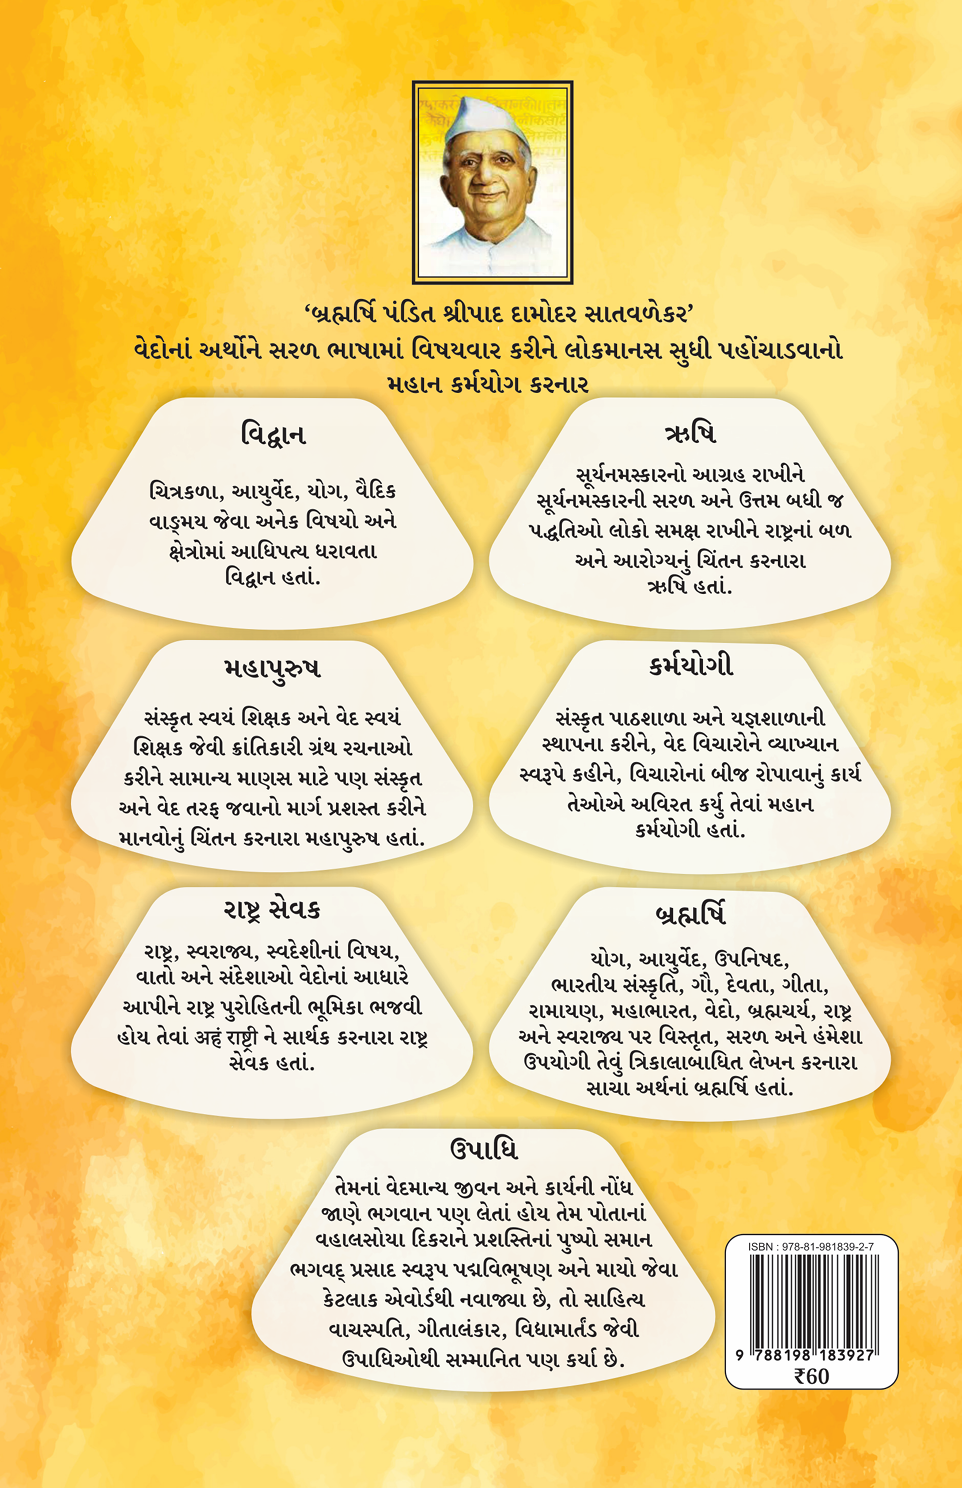 ‘બ્રહ્મર્ષિ પંડિત શ્રીપાદ દામોદર સાતવળેકર’
વેદોનાં અર્થોને સરળ ભાષામાં વિષયવાર કરીને લોકમાનસ સુધી પહોંચાડવાનો
મહાન કર્મયોગ કરનાર
વિદ્વાન
ચિત્રકળા, આયુર્વેદ, યોગ, વૈદિક
વાઙ્મય જેવા અનેક વિષયો અને
ક્ષેત્રોમાં આધિપત્ય ધરાવતા
વિદ્વાન હતાં.
ઋષિ
સૂર્યનમસ્કારનો આગ્રહ રાખીને
સૂર્યનમસ્કારની સરળ અને ઉત્તમ બધી જ
પદ્ધતિઓ લોકો સમક્ષ રાખીને રાષ્ટ્રનાં બળ
અને આરોગ્યનું ચિંતન કરનારા
ઋષિ હતાં.
મહાપુરુષ
સંસ્કૃત સ્વયં શિક્ષક અને વેદ સ્વયં
શિક્ષક જેવી ક્રાંતિકારી ગ્રંથ રચનાઓ
કરીને સામાન્ય માણસ માટે પણ સંસ્કૃત
અને વેદ તરફ જવાનો માર્ગ પ્રશસ્ત કરીને
માનવોનું ચિંતન કરનારા મહાપુરુષ હતાં.
કર્મયોગી
સંસ્કૃત પાઠશાળા અને યજ્ઞશાળાની
સ્થાપના કરીને, વેદ વિચારોને વ્યાખ્યાન
સ્વરૂપે કહીને, વિચારોનાં બીજ રોપાવાનું કાર્ય
તેઓએ અવિરત કર્યુ તેવાં મહાન
કર્મયોગી હતાં.
રાષ્ટ્ર સેવક
રાષ્ટ્ર, સ્વરાજ્ય, સ્વદેશીનાં વિષય,
વાતો અને સંદેશાઓ વેદોનાં આધારે
આપીને રાષ્ટ્ર પુરોહિતની ભૂમિકા ભજવી
હોય તેવાં अहं राष्ट्री ને સાર્થક કરનારા રાષ્ટ્ર
સેવક હતાં.
બ્રહ્મર્ષિ
યોગ, આયુર્વેદ, ઉપનિષદ,
ભારતીય સંસ્કૃતિ, ગૌ, દેવતા, ગીતા,
રામાયણ, મહાભારત, વેદો, બ્રહ્મચર્ય, રાષ્ટ્ર
અને સ્વરાજ્ય પર વિસ્તૃત, સરળ અને હંમેશા
ઉપયોગી તેવું ત્રિકાલાબાધિત લેખન કરનારા
સાચા અર્થનાં બ્રહ્મર્ષિ હતાં.
ઉપાધિ
તેમનાં વેદમાન્ય જીવન અને કાર્યની નોંધ
જાણે ભગવાન પણ લેતાં હોય તેમ પોતાનાં
વહાલસોયા દિકરાને પ્રશસ્તિનાં પુષ્પો સમાન
ભગવદ્ પ્રસાદ સ્વરૂપ પદ્મવિભૂષણ અને માયો જેવા
કેટલાક એવોર્ડથી નવાજ્યા છે, તો સાહિત્ય
વાચસ્પતિ, ગીતાલંકાર, વિદ્યામાર્તંડ જેવી
ઉપાધિઓથી સમ્માનિત પણ કર્યા છે.
ISBN : 978-81-981839-2-7
9 788198 183927
₹60